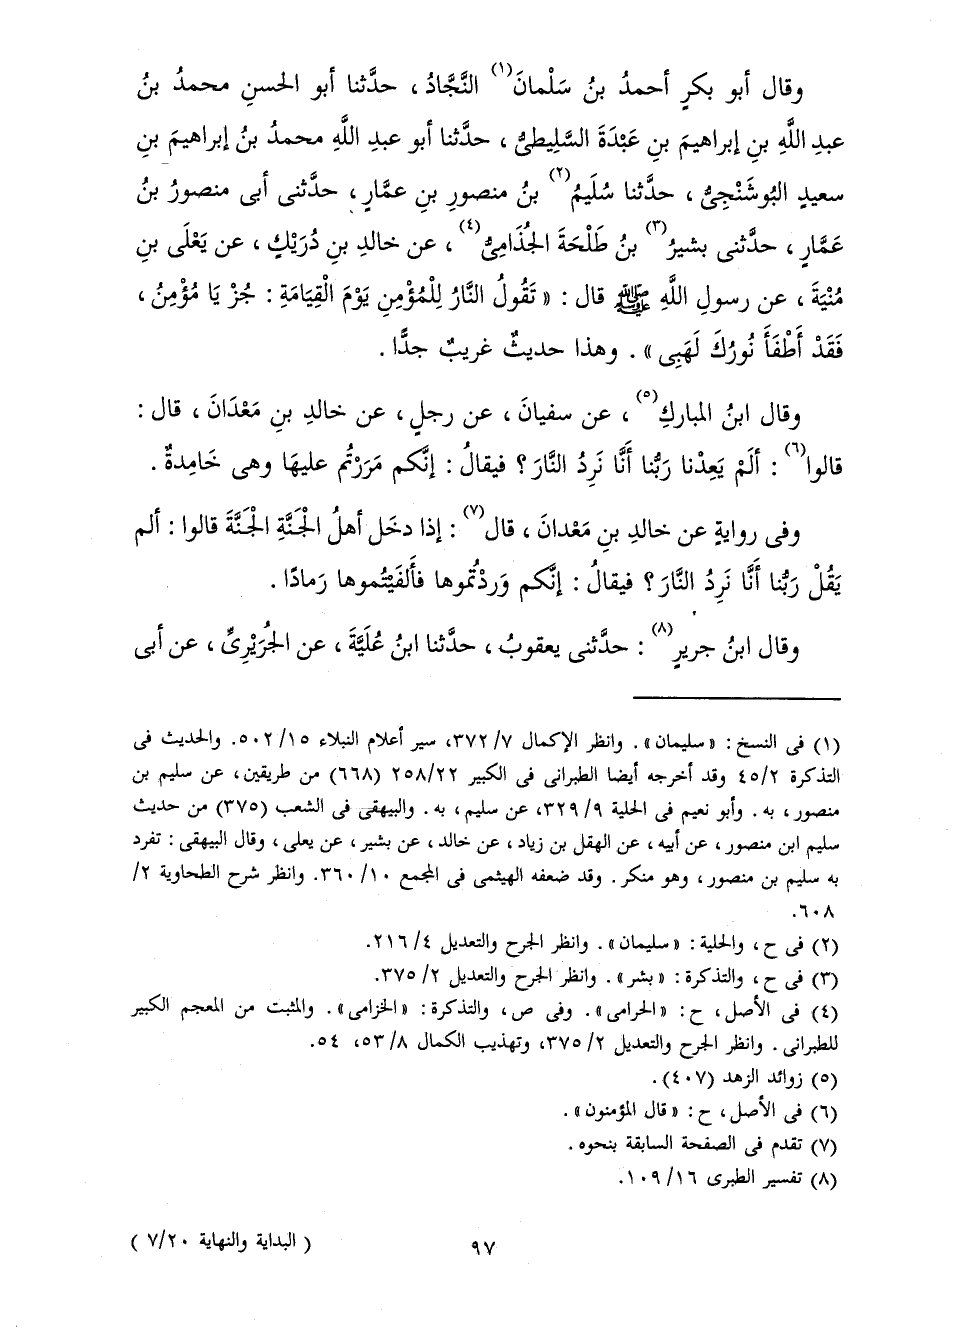 وقال أبو بكرٍ أحمدُ بنُ سَلْمانَ(١) النَّجَّادُ ، حدَّثنا أبو الحسنِ محمدُ بنُ
عبدِ اللَّهِ بنِ إبراهيمَ بنِ عَبْدَةَ السَّلِيطىُّ ، حدَّثنا أبو عبدِ اللَّهِ محمدُ بنُ إبراهيمَ بنِ
سعيدٍ البُوشَنْجِىُّ ، حدَّثنا سُلَيمُ(٢) بنُ منصورِ بنِ عمَّارٍ ، حدَّثنى أبى منصورُ بنُ
عَمَّارٍ ، حدَّثنى بشيرُ(٣) بنُ طَلْحَةَ الجُذَامِىُّ(٤) ، عن خالدِ بنِ دُرَيْكٍ ، عن يَعْلَى بنِ
مُنْيَةَ ، عن رسولِ اللَّهِ ﷺ قال : « تَقُولُ النَّارُ لِلْمُؤْمِنِ يَوْمَ الْقِيَامَةِ : جُزْ يَا مُؤْمِنُ ،
فَقَدْ أَطْفَأَ نُورُكَ لَهَبِى » . وهذا حديثٌ غريبٌ جدًّا .
وقال ابنُ المباركِ(٥) ، عن سفيانَ ، عن رجلٍ ، عن خالدِ بنِ مَعْدَانَ ، قال :
قالوا(٦) : أَلَمْ يَعِدْنا رَبُّنا أَنَّا نَرِدُ النَّارَ ؟ فيقالُ : إنَّكم مَرَرْتُم عليهَا وهى خَامِدةٌ .
وفى روايةٍ عن خالدِ بنِ مَعْدانَ ، قال(٧) : إذا دخَل أهلُ الجَنَّةِ الجَنَّةَ قالوا : ألم
يَقُلْ رَبُّنا أَنَّا نَرِدُ النَّارَ ؟ فيقالُ : إنَّكم وَرَدْتُموها فأَلفَيْتُموها رَمادًا .
وقال ابنُ جريرٍ(٨) : حدَّثنى يعقوبُ ، حدَّثنا ابنُ عُلَيَّةَ ، عن الجُرَيْرِىِّ ، عن أبى
(١) فى النسخ : « سليمان » . وانظر الإكمال ٧/ ٣٧٢، سير أعلام النبلاء ١٥/ ٥٠٢. والحديث فى
التذكرة ٢/ ٤٥ وقد أخرجه أيضا الطبرانى فى الكبير ٢٢/ ٢٥٨ (٦٦٨) من طريقين، عن سليم بن
منصور ، به . وأبو نعيم فى الحلية ٩/ ٣٢٩، عن سليم ، به . والبيهقى فى الشعب (٣٧٥) من حديث
سليم ابن منصور ، عن أبيه ، عن الهقل بن زياد ، عن خالد ، عن بشير ، عن يعلى ، وقال البيهقى : تفرد
به سليم بن منصور ، وهو منكر . وقد ضعفه الهيثمى فى المجمع ١٠/ ٣٦٠. وانظر شرح الطحاوية ٢/
٦٠٨.
(٢) فى ح ، والحلية : « سليمان » . وانظر الجرح والتعديل ٤/ ٢١٦.
(٣) فى ح ، والتذكرة : « بشر » . وانظر الجرح والتعديل ٢/ ٣٧٥.
(٤) فى الأصل ، ح : « الحرامى » . وفى ص ، والتذكرة : « الخزامى » . والمثبت من المعجم الكبير
للطبرانى . وانظر الجرح والتعديل ٢/ ٣٧٥، وتهذيب الكمال ٨/ ٥٣، ٥٤.
(٥) زوائد الزهد (٤٠٧) .
(٦) فى الأصل ، ح : « قال المؤمنون » .
(٧) تقدم فى الصفحة السابقة بنحوه .
(٨) تفسير الطبرى ١٦/ ١٠٩.
٩٧
( البداية والنهاية ٧/٢٠ )